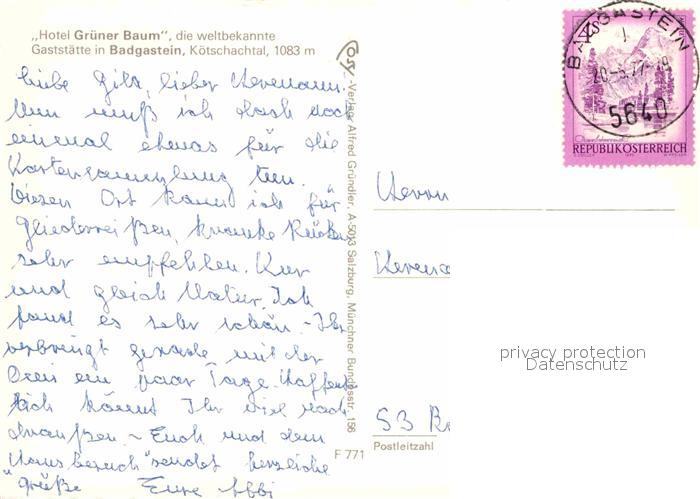 „Hotel Grüner Baum“, die weltbekannte
Gaststätte in Badgastein, Kötschachtal, 1083 m
liebe Gila, lieber Hermann.
Nun muß ich doch noch
einmal etwas für die
Kartensammlung tun.
Diesen Ort kann ich für
Gliederreißen, kranke Rücken
sehr empfehlen. Kur
und gleich Natur. Ich
fand es sehr schön. - Ihr
verbringt gerade mit der
Omi ein paar Tage. Hoffent-
lich könnt Ihr viel nach
draußen - Euch und dem
„Hausbesuch“ sendet herzliche
Grüße Eure
Verlag Alfred Gründler, A-5013 Salzburg, Münchner Bundesstr. 156
F 771
BADGASTEIN
5640
REPUBLIK ÖSTERREICH
Herrn
53 B
Postleitzahl
privacy protection
Datenschutz